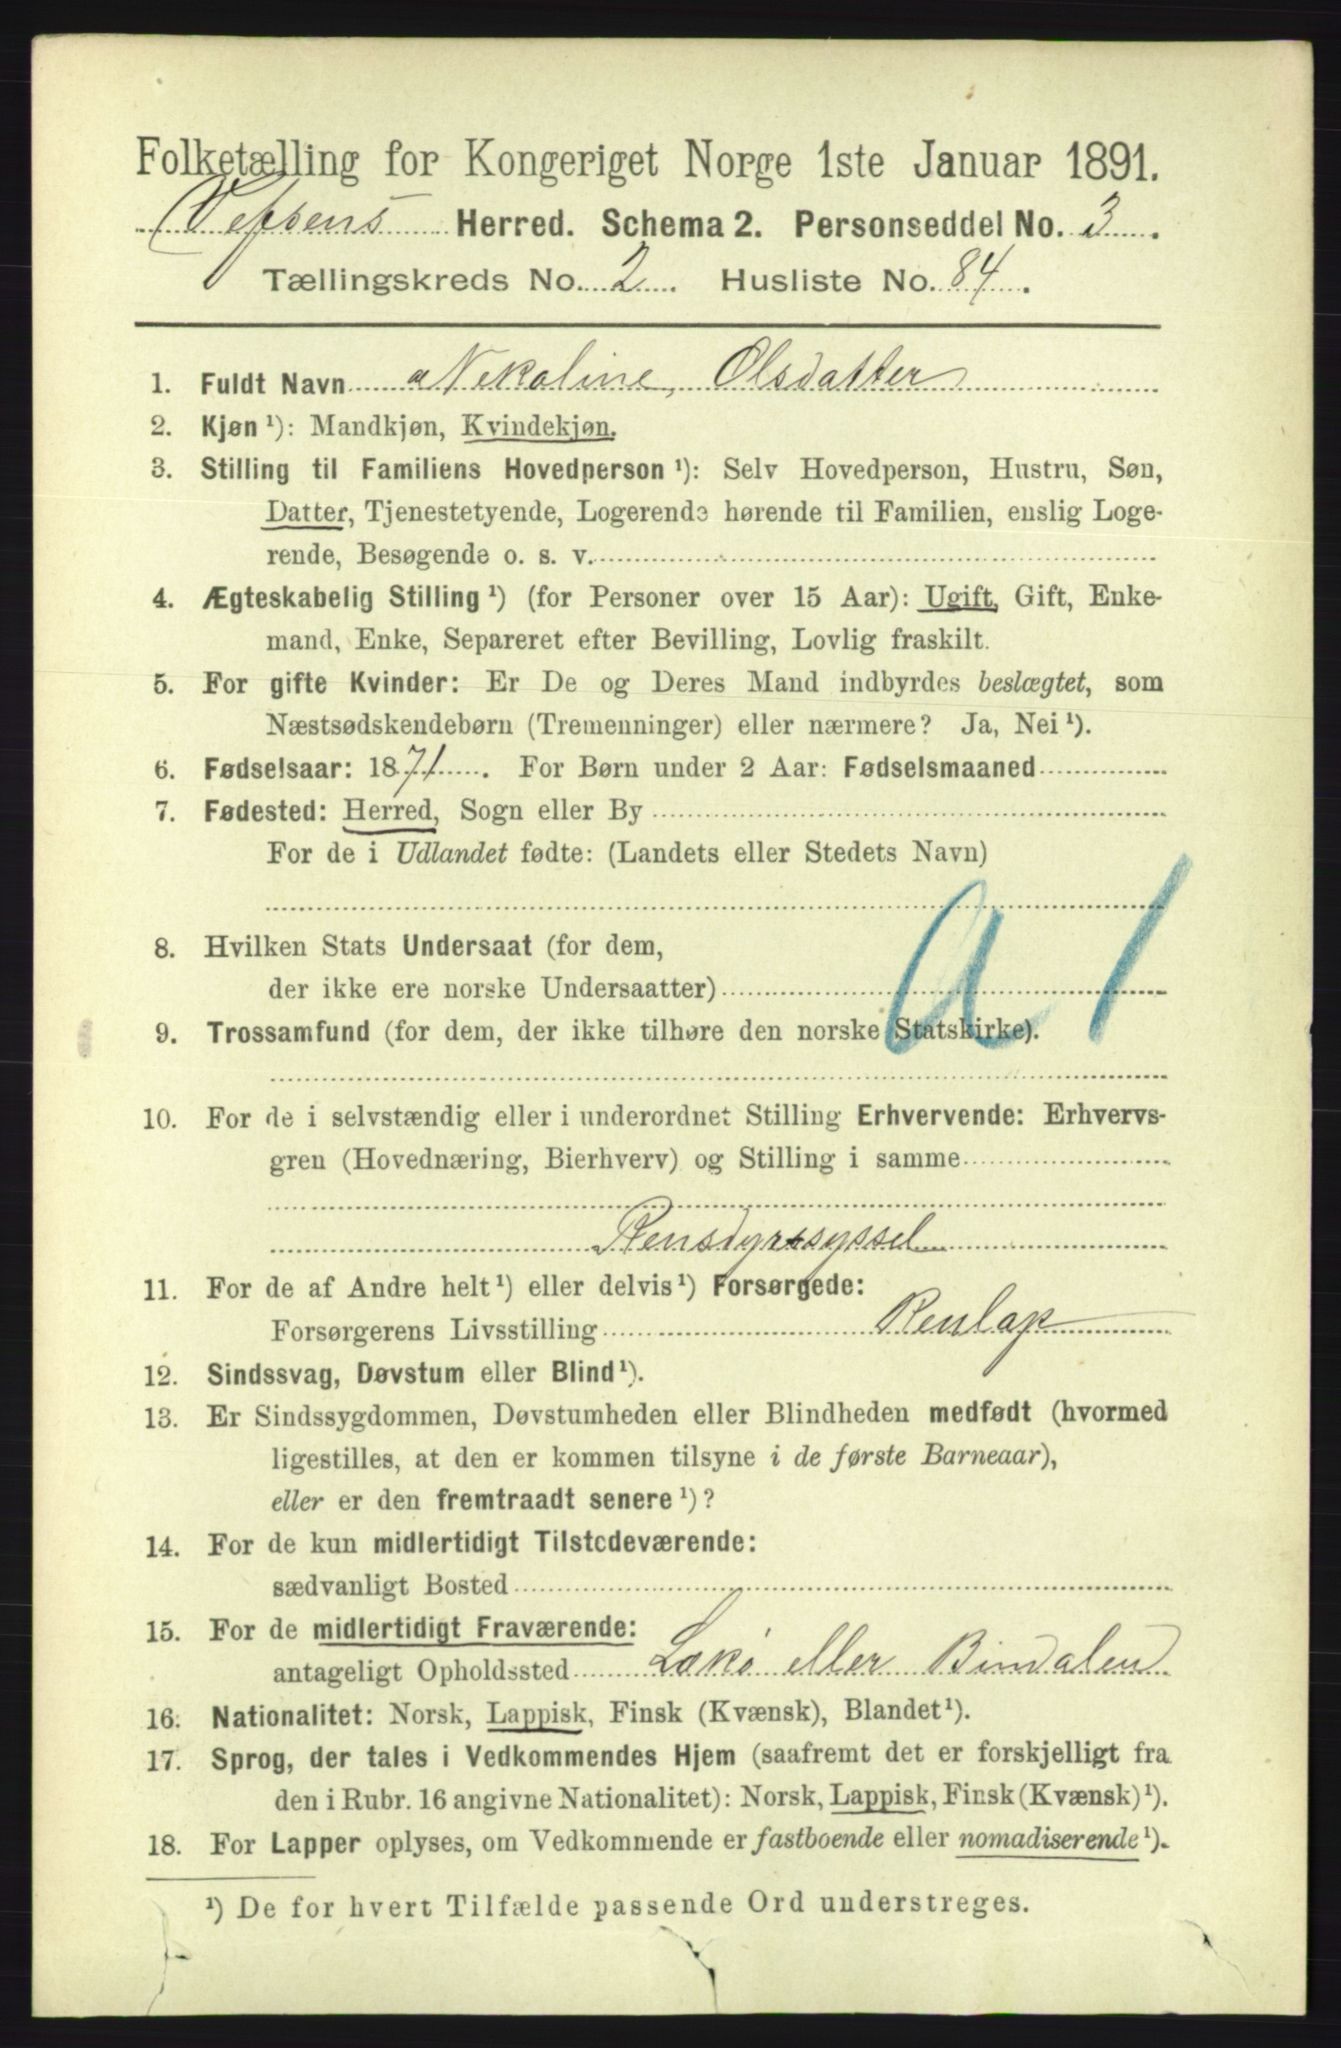 Folketælling for Kongeriget Norge 1ste Januar 1891.
Vefsens Herred. Schema 2. Personseddel No. 3.
Tællingskreds No. 2. Husliste No. 84.
1. Fuldt Navn Nekoline Olsdatter
2. Kjøn ¹): Mandkjøn, Kvindekjøn.
3. Stilling til Familiens Hovedperson ¹): Selv Hovedperson, Hustru, Søn,
Datter, Tjenestetyende, Logerende hørende til Familien, enslig Loge-
rende, Besøgende o. s. v.
4. Ægteskabelig Stilling ¹) (for Personer over 15 Aar): Ugift, Gift, Enke-
mand, Enke, Separeret efter Bevilling, Lovlig fraskilt.
5. For gifte Kvinder: Er De og Deres Mand indbyrdes beslægtet, som
Næstsødskendebørn (Tremenninger) eller nærmere? Ja, Nei ¹).
6. Fødselsaar: 1871. For Børn under 2 Aar: Fødselsmaaned
7. Fødested: Herred, Sogn eller By
For de i Udlandet fødte: (Landets eller Stedets Navn)
a 1
8. Hvilken Stats Undersaat (for dem,
der ikke ere norske Undersaatter)
9. Trossamfund (for dem, der ikke tilhøre den norske Statskirke).
10. For de i selvstændig eller i underordnet Stilling Erhvervende: Erhvervs-
gren (Hovednæring, Bierhverv) og Stilling i samme
Rensdyrssyssel
11. For de af Andre helt ¹) eller delvis ¹) Forsørgede:
Forsørgerens Livsstilling Renlap
12. Sindssvag, Døvstum eller Blind ¹).
13. Er Sindssygdommen, Døvstumheden eller Blindheden medfødt (hvormed
ligestilles, at den er kommen tilsyne i de første Barneaar),
eller er den fremtraadt senere ¹)?
14. For de kun midlertidigt Tilstedeværende:
sædvanligt Bosted
15. For de midlertidigt Fraværende:
antageligt Opholdssted Lekø eller Bindalen
16. Nationalitet: Norsk, Lappisk, Finsk (Kvænsk), Blandet ¹).
17. Sprog, der tales i Vedkommendes Hjem (saafremt det er forskjelligt fra
den i Rubr. 16 angivne Nationalitet): Norsk, Lappisk, Finsk (Kvænsk) ¹).
18. For Lapper oplyses, om Vedkommende er fastboende eller nomadiserende ¹).
¹) De for hvert Tilfælde passende Ord understreges.